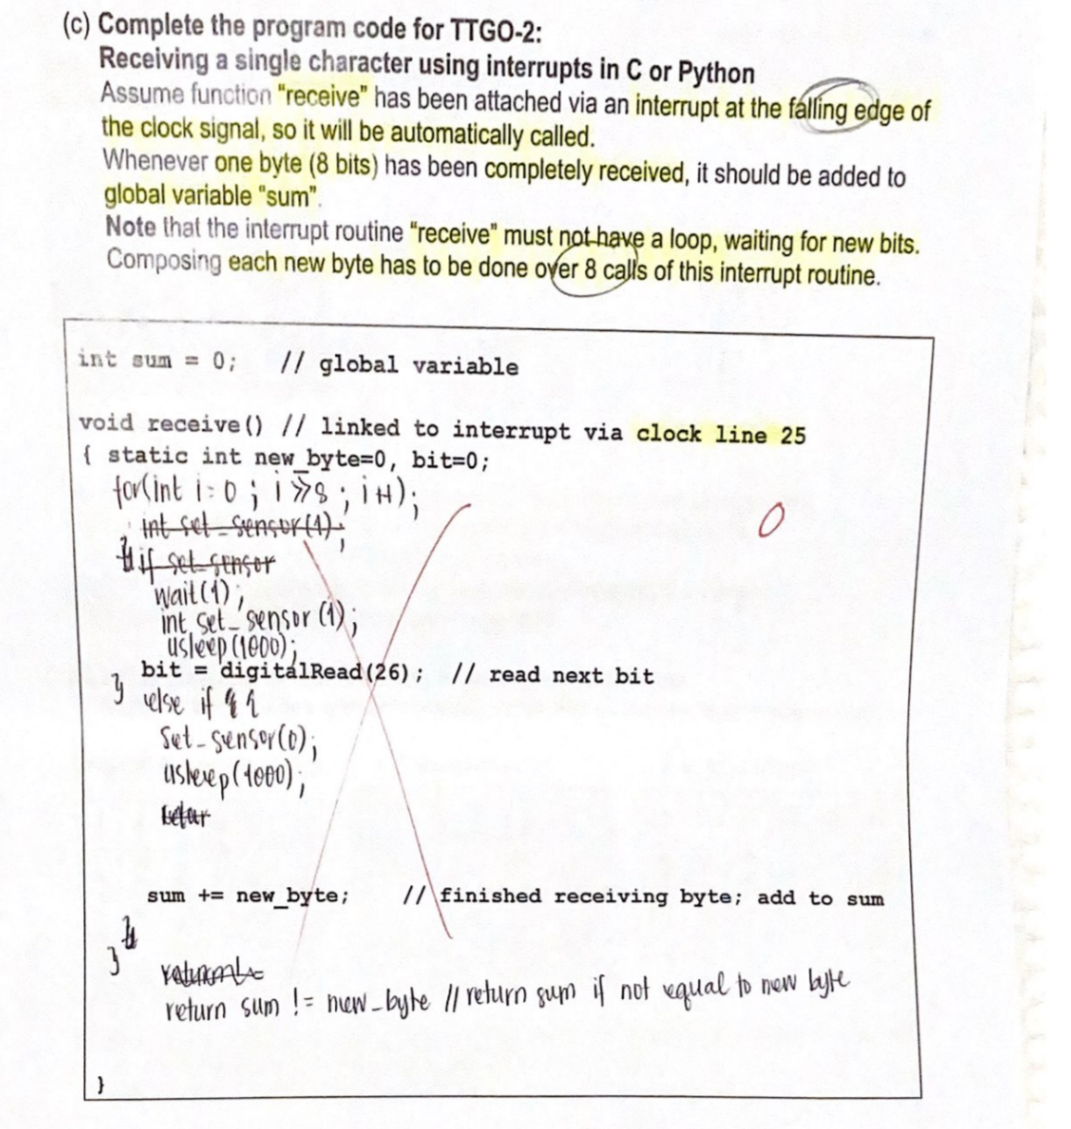 (c) Complete the program code for TTGO-2:
Receiving a single character using interrupts in C or Python
Assume function "receive" has been attached via an interrupt at the falling edge of
the clock signal, so it will be automatically called.
Whenever one byte (8 bits) has been completely received, it should be added to
global variable "sum".
Note that the interrupt routine "receive" must not have a loop, waiting for new bits.
Composing each new byte has to be done over 8 calls of this interrupt routine.
int sum = 0; // global variable
void receive() // linked to interrupt via clock line 25
{ static int new_byte=0, bit=0;
for(int i=0; i>>8; i++);
int set_sensor(1);
if set_sensor
wait(1);
int set_sensor(1);
usleep(1000);
bit = digitalRead(26); // read next bit
} else if { {
Set_sensor(0);
usleep(1000);
sum += new_byte; // finished receiving byte; add to sum
}
return sum != new_byte // return sum if not equal to new byte
}
0